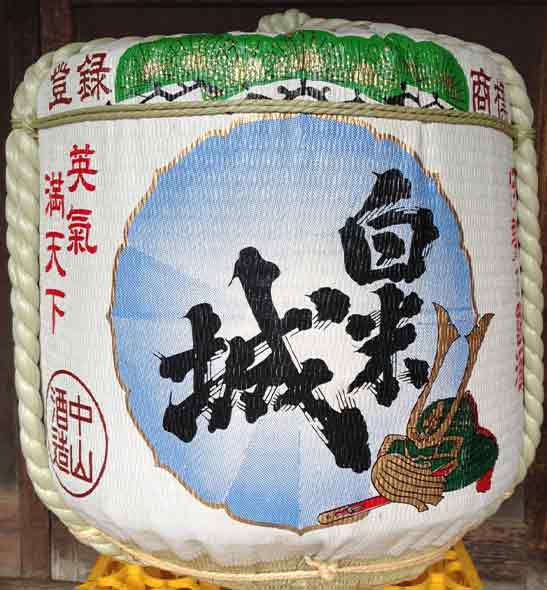 登録
商標
英氣
満天下
白米
城
中山
酒造